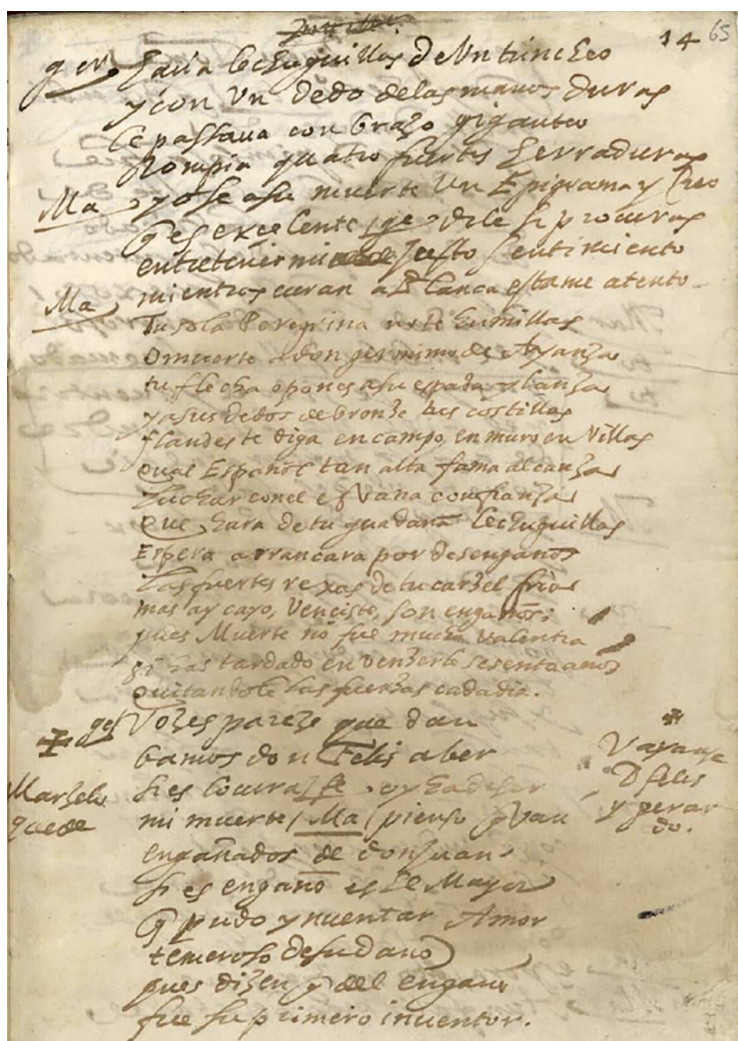 14 65
ger hacia lechuguillas de Un trincheo
y con Un dedo de las manos duras
le passaua con brazo giganteo
Rompia quatro fuertes herraduras
Ma yo se a su muerte Un Epigrama y creo
q es excelente / ge dile si procuras
entretener mi justo sentimiento
mientras curan a Blanca estame atento
Ma Tu sola Peregrina no te humillas
o muerte a don germimo de Ayanza
tu flecha opones a su espada y lanza
y a sus dedos de bronze tus costillas
flandes te diga en campo, en muro en Villas
qual Español tan alta fama alcanza
Luchar con el es Vana confianza
que hara de tu guadaña lechuguillas
Espera arrancara por desengaños
Las fuertes rexas de tu carzel fria
mas ay cayo, Venciste, son engaños:
pues Muerte no fue mucha valentia
si has tardado en venzerle sesenta años
quitandole las fuerzas cada dia.
ger Vozes pareze que dan
bamos don Felis a ber
si es locura / fe oy ha de ser
mi muerte / Ma / pienso q Van
engañados de don Juan
si es engaño es el Mayor
q pudo ynuentar Amor
temeroso de su daño
pues dizen q del engano
fue su primero inuentor.
Marzelo
quede
Vayanse
D felis
y gerar
do.